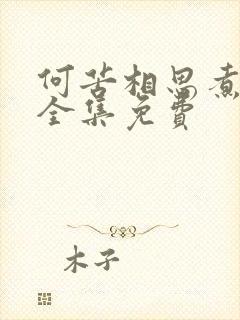 何苦相思煮
全集免费
木子